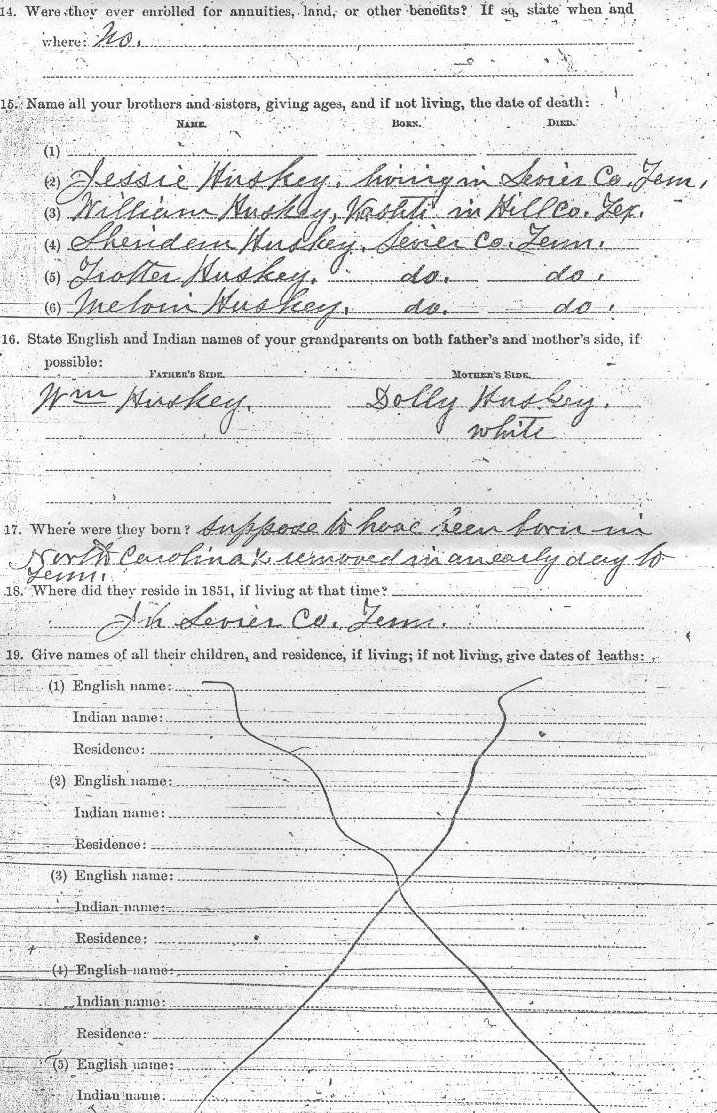 14. Were they ever enrolled for annuities, land, or other benefits? If so, state when and
where: No.
15. Name all your brothers and sisters, giving ages, and if not living, the date of death:
NAME. BORN. DIED.
(1)
(2) Jessie Huskey, living in Sevier Co. Tenn,
(3) William Huskey, Vashti in Hill Co. Tex.
(4) Sheridem Huskey, Sevier Co. Tenn.
(5) Trotter Huskey. do. do.
(6) Melvin Huskey. do. do.
16. State English and Indian names of your grandparents on both father's and mother's side, if
possible:
FATHER'S SIDE. MOTHER'S SIDE.
Wm Huskey. Dolly Huskey.
white
17. Where were they born? Suppose to have been born in
North Carolina & removed in an early day to
Tenn.
18. Where did they reside in 1851, if living at that time?
In Sevier Co. Tenn.
19. Give names of all their children, and residence, if living; if not living, give dates of deaths:
(1) English name:
Indian name:
Residence:
(2) English name:
Indian name:
Residence:
(3) English name:
Indian name:
Residence:
(4) English name:
Indian name:
Residence:
(5) English name:
Indian name: